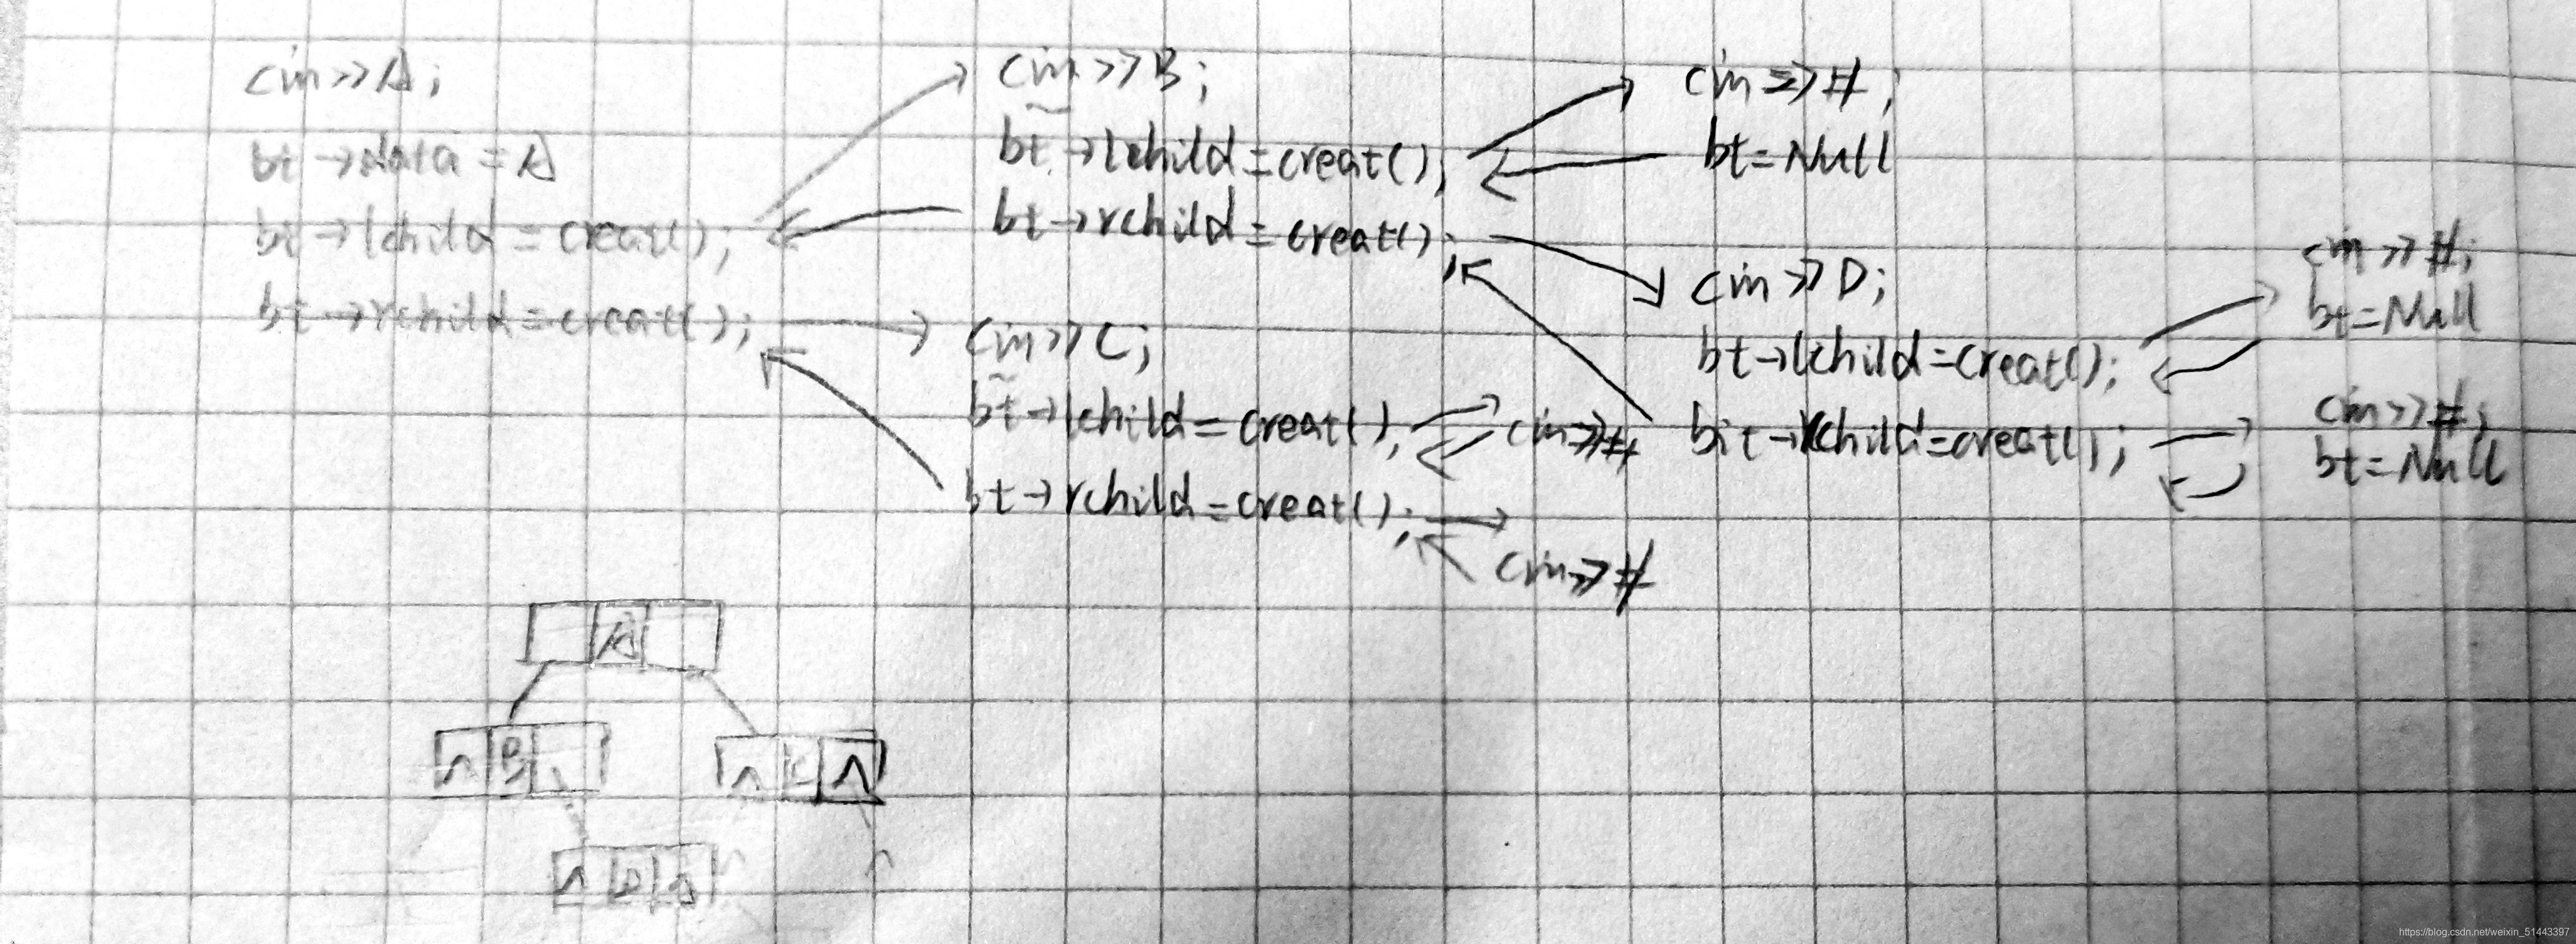 cin>>A;
bt→data=A
bt→lchild=creat();
bt→rchild=creat();
cin>>B;
bt→lchild=creat();
bt→rchild=creat();
cin>>#;
bt=Null
cin>>D;
bt→lchild=creat();
bit→rchild=creat();
cin>>#;
bt=Null
cin>>#;
bt=Null
cin>>C;
bt→lchild=creat();
bt→rchild=creat();
cin>>#
cin>>#
A
∧ B
∧ C ∧
∧ D ∧
https://blog.csdn.net/weixin_51443397